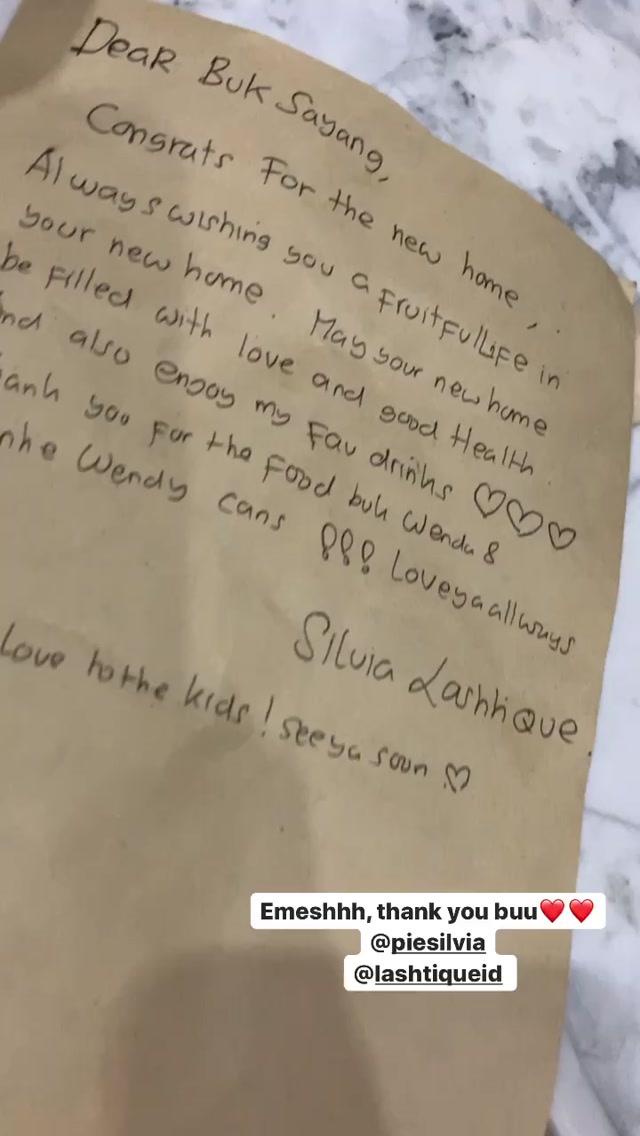 Dear Buk Sayang,
Congrats For the new home,
Always wishing you a Fruitful Life in
your new home. May your new home
be Filled with love and good Health.
nd also enjoy my Fav drinks ♡♡♡
ank you For the Food buk Wenda &
Wendy cans !!! Love ya allways
Silvia Lashtique.
Love to the kids! see ya soon ♡
Emeshhh, thank you buu❤️❤️
@piesilvia
@lashtiqueid